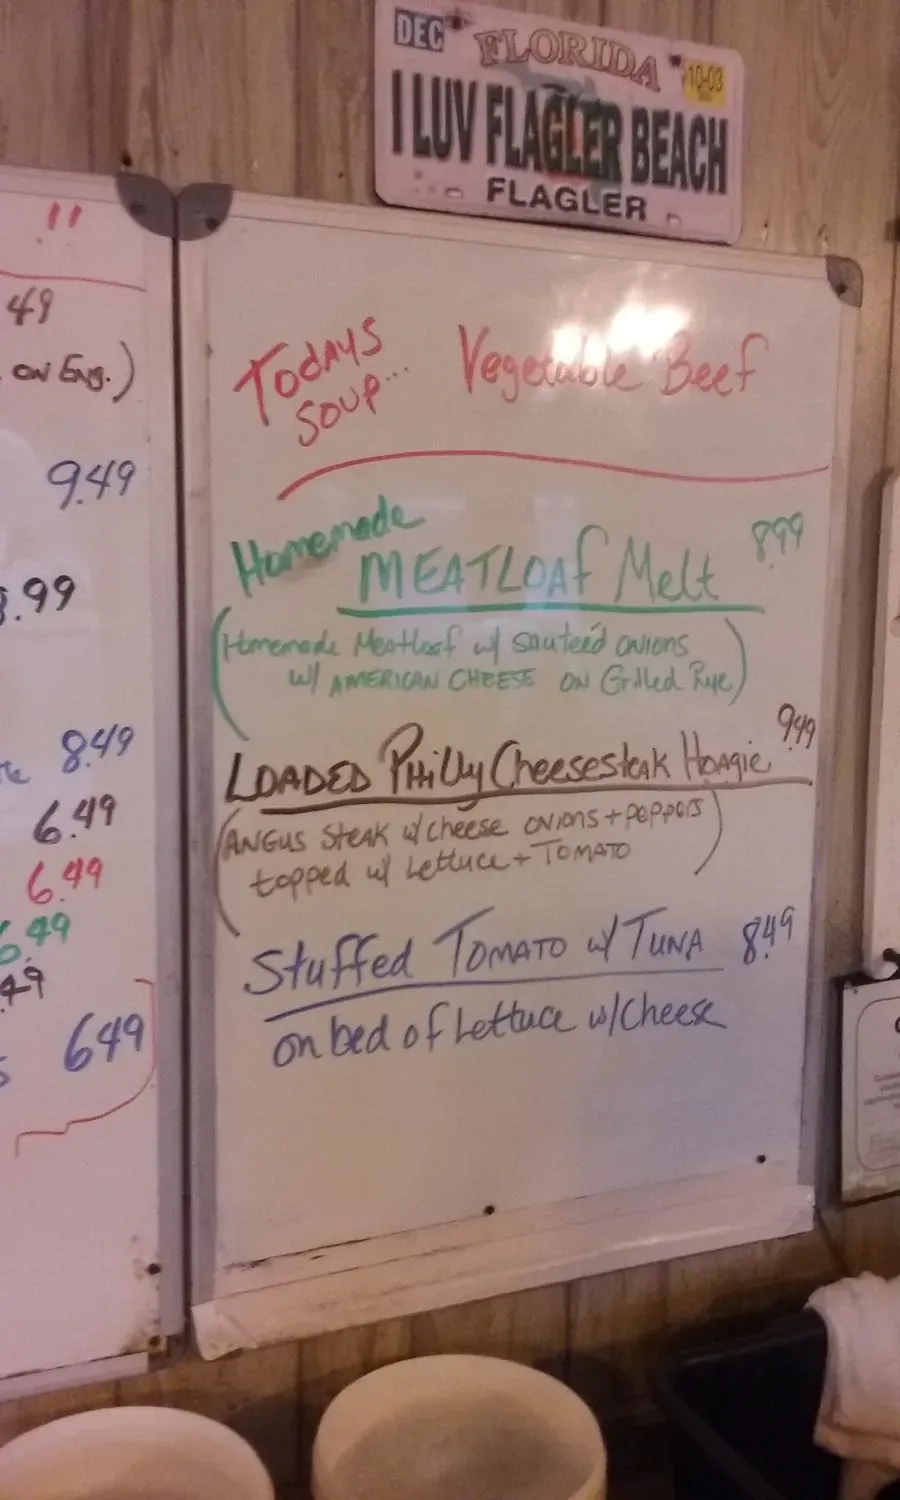 DEC FLORIDA 10-03
I LUV FLAGLER BEACH
FLAGLER
!!
49
ON ENG.)
9.49
.99
8.49
6.49
6.49
6.49
.49
6.49
TODAYS
SOUP... Vegetable Beef
Homemade
MEATLOAf Melt 8.99
(Homemade Meatloaf w/ sauteéd ONIONS
w/ AMERICAN CHEESE ON Grilled Rye)
LOADED PHilly Cheesesteak HOAGIE 9.49
(ANGUS Steak w/cheese ONIONS + peppers
topped w/ Lettuce + TOMATO)
Stuffed TOMATO w/ TUNA 8.49
on bed of Lettuce w/Cheese